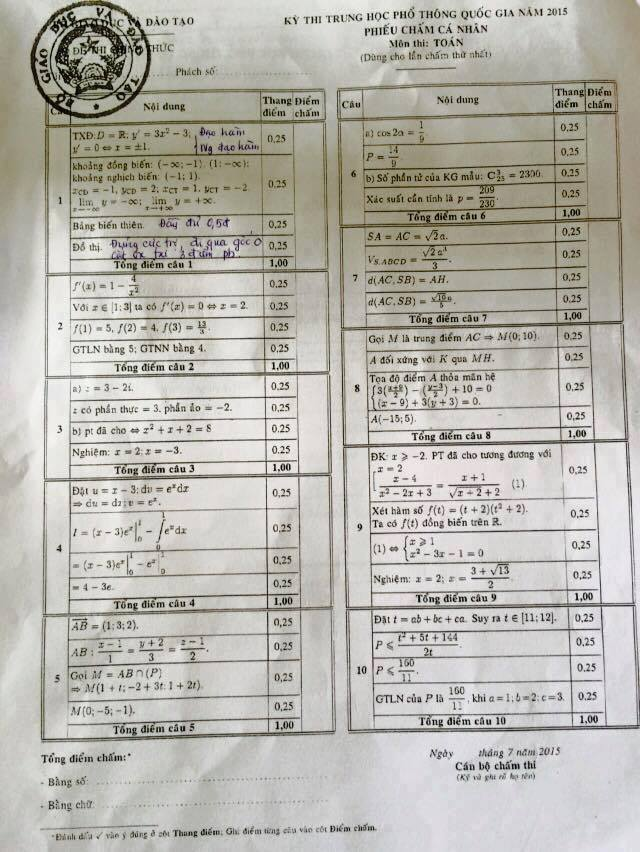 BỘ GIÁO DỤC VÀ ĐÀO TẠO
GIÁO DỤC VÀ ĐÀO TẠO
ĐỀ THI CHÍNH THỨC
Phách số:
KỲ THI TRUNG HỌC PHỔ THÔNG QUỐC GIA NĂM 2015
PHIẾU CHẤM CÁ NHÂN
Môn thi: TOÁN
(Dùng cho lần chấm thứ nhất)
Câu Nội dung Thang điểm Điểm chấm
1
TXĐ: D = ℝ; y' = 3x² − 3; Đạo hàm 0,25
y' = 0 ⇔ x = ±1. Ng đạo hàm
khoảng đồng biến: (−∞; −1), (1; +∞);
khoảng nghịch biến: (−1; 1). 0,25
x_CĐ = −1, y_CĐ = 2; x_CT = 1, y_CT = −2.
lim x→−∞ y = −∞; lim x→+∞ y = +∞.
Bảng biến thiên. Đầy đủ 0,5đ 0,25
Đồ thị. Đúng cực trị, đi qua gốc O 0,25
cắt ox tại 3 điểm pb
Tổng điểm câu 1 1,00
2
f'(x) = 1 − 4/x² 0,25
Với x ∈ [1; 3] ta có f'(x) = 0 ⇔ x = 2. 0,25
f(1) = 5, f(2) = 4, f(3) = 13/3. 0,25
GTLN bằng 5; GTNN bằng 4. 0,25
Tổng điểm câu 2 1,00
3
a) z = 3 − 2i. 0,25
z có phần thực = 3, phần ảo = −2. 0,25
b) pt đã cho ⇔ x² + x + 2 = 8 0.25
Nghiệm: x = 2; x = −3. 0,25
Tổng điểm câu 3 1,00
4
Đặt u = x − 3; dv = eˣdx 0,25
⇒ du = dx; v = eˣ.
I = (x − 3)eˣ|₀¹ − ∫₀¹ eˣdx 0,25
= (x − 3)eˣ|₀¹ − eˣ|₀¹ 0,25
= 4 − 3e. 0,25
Tổng điểm câu 4 1,00
5
AB⃗ = (1; 3; 2). 0,25
AB : (x − 1)/1 = (y + 2)/3 = (z − 1)/2. 0,25
Gọi M = AB ∩ (P) 0,25
⇒ M(1 + t; −2 + 3t; 1 + 2t).
M(0; −5; −1). 0,25
Tổng điểm câu 5 1,00
Câu Nội dung Thang điểm Điểm chấm
6
a) cos 2α = 1/9 0,25
P = 14/9 0,25
b) Số phần tử của KG mẫu: C³₂₅ = 2300. 0,25
Xác suất cần tính là p = 209/230. 0,25
Tổng điểm câu 6 1,00
7
SA = AC = √2a. 0,25
V_S.ABCD = √2a³/3. 0,25
d(AC, SB) = AH. 0,25
d(AC, SB) = √10a/5. 0,25
Tổng điểm câu 7 1,00
8
Gọi M là trung điểm AC ⇒ M(0; 10). 0,25
A đối xứng với K qua MH. 0,25
Tọa độ điểm A thỏa mãn hệ
{3((x+9)/2) − ((y−3)/2) + 10 = 0 0,25
{(x − 9) + 3(y + 3) = 0.
A(−15; 5). 0,25
Tổng điểm câu 8 1,00
9
ĐK: x ⩾ −2. PT đã cho tương đương với
[x = 2 0,25
[(x − 4)/(x² − 2x + 3) = (x + 1)/(√(x + 2) + 2) (1).
Xét hàm số f(t) = (t + 2)(t² + 2). 0,25
Ta có f(t) đồng biến trên ℝ.
(1) ⇔ {x ⩾ 1 0,25
{x² − 3x − 1 = 0
Nghiệm: x = 2; x = (3 + √13)/2. 0,25
Tổng điểm câu 9 1,00
10
Đặt t = ab + bc + ca. Suy ra t ∈ [11; 12]. 0,25
P ⩽ (t² + 5t + 144)/2t. 0,25
P ⩽ 160/11. 0,25
GTLN của P là 160/11, khi a = 1; b = 2; c = 3. 0,25
Tổng điểm câu 10 1,00
Tổng điểm chấm:*
- Bằng số:
- Bằng chữ:
Ngày tháng 7 năm 2015
Cán bộ chấm thi
(Ký và ghi rõ họ tên)
*Đánh dấu ✓ vào ý đúng ở cột Thang điểm; Ghi điểm từng câu vào cột Điểm chấm.